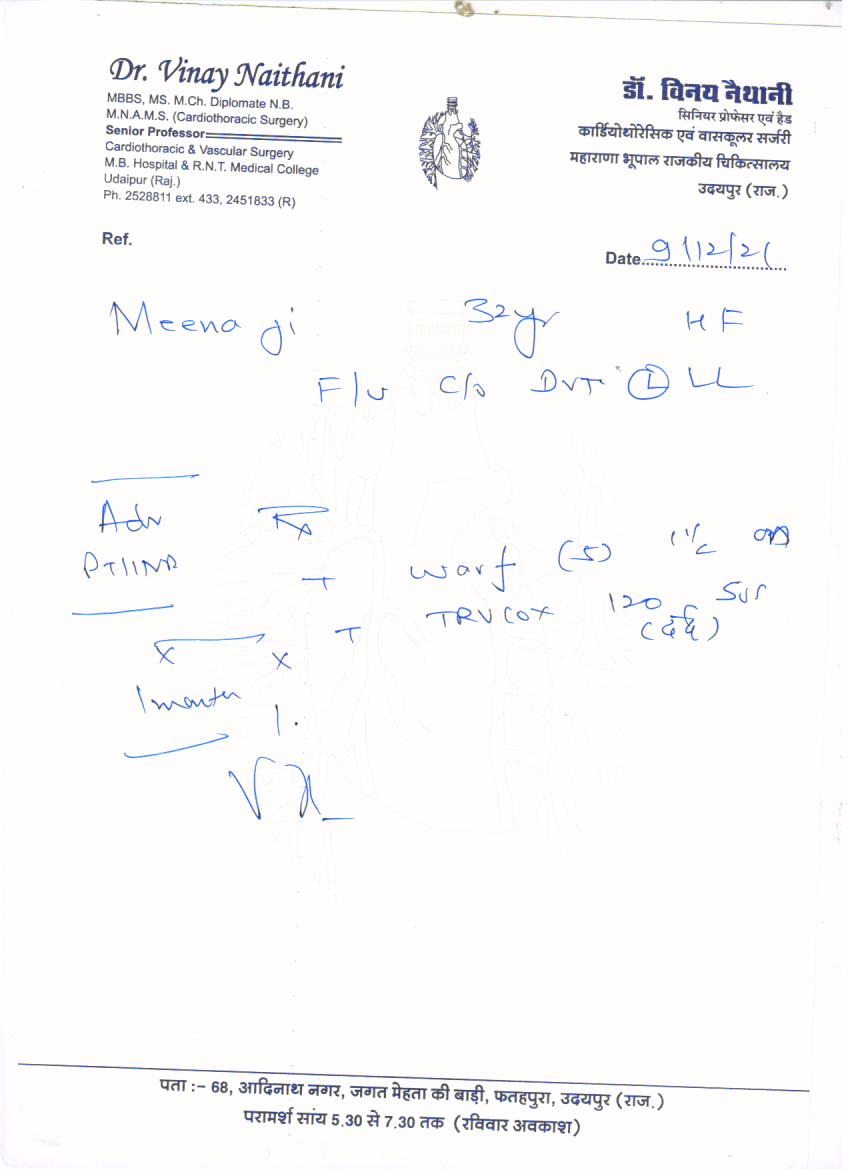 Dr. Vinay Naithani
MBBS, MS. M.Ch. Diplomate N.B.
M.N.A.M.S. (Cardiothoracic Surgery)
Senior Professor
Cardiothoracic & Vascular Surgery
M.B. Hospital & R.N.T. Medical College
Udaipur (Raj.)
Ph. 2528811 ext. 433, 2451833 (R)
डॉ. विनय नैथानी
सिनियर प्रोफेसर एवं हैड
कार्डियोथोरेसिक एवं वासकूलर सर्जरी
महाराणा भूपाल राजकीय चिकित्सालय
उदयपुर (राज.)
Ref.
Date 9/12/21
Meena ji 32yr H F
F/U C/O DVT (L) LL
Adv Rx
PT/INR
T warf (5) OD
T 120 SOS
(दर्द)
x x
1 month
पता :– 68, आदिनाथ नगर, जगत मेहता की बाड़ी, फतहपुरा, उदयपुर (राज.)
परामर्श सांय 5.30 से 7.30 तक (रविवार अवकाश)